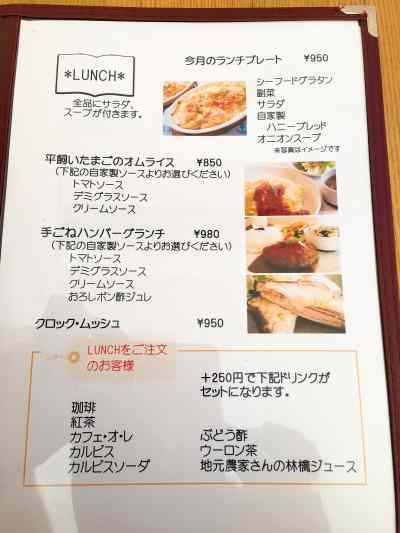 *LUNCH*
全品にサラダ、
スープが付きます。
今月のランチプレート ¥950
シーフードグラタン
副菜
サラダ
自家製
ハニーブレッド
オニオンスープ
※写真はイメージです
平飼いたまごのオムライス ¥850
(下記の自家製ソースよりお選びください)
トマトソース
デミグラスソース
クリームソース
手ごねハンバーグランチ ¥980
(下記の自家製ソースよりお選びください)
トマトソース
デミグラスソース
クリームソース
おろしポン酢ジュレ
クロック・ムッシュ ¥950
LUNCHをご注文
のお客様
+250円で下記ドリンクが
セットになります。
珈琲
紅茶
カフェ・オ・レ
カルピス
カルピスソーダ
ぶどう酢
ウーロン茶
地元農家さんの林檎ジュース